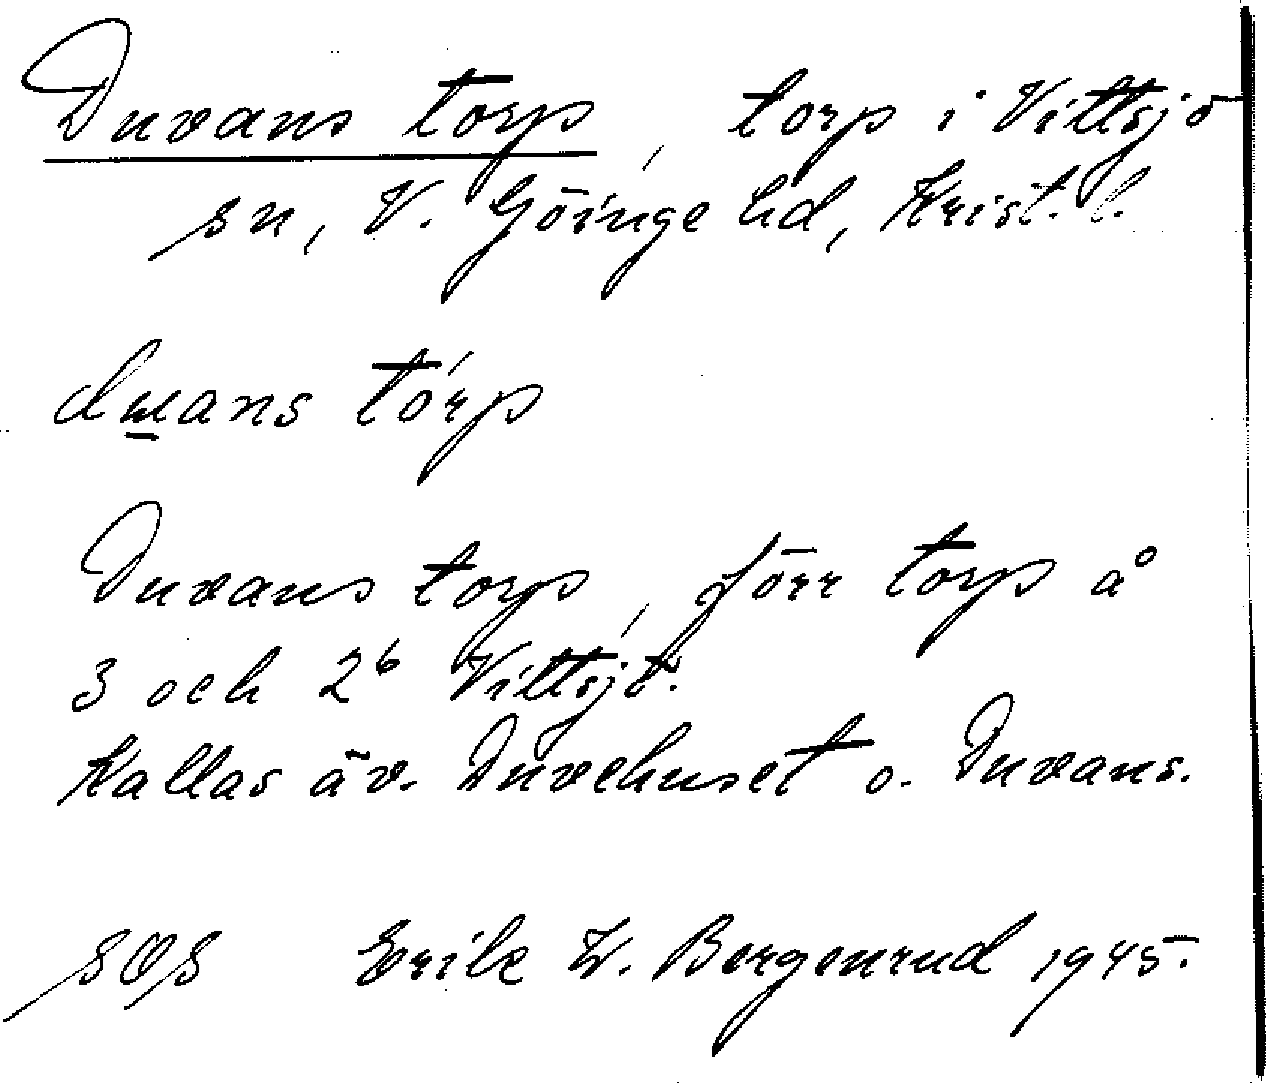 Duvans torp, torp i Vittsjö
sn, V. Göinge hd, Krist. l.
torp
Duvans torp, förr torp å
3 och 2⁶ Vittsjö.
Kallas äv. Duvehuset o. Duvans.
SOS Erik W. Bergenrud 1945.